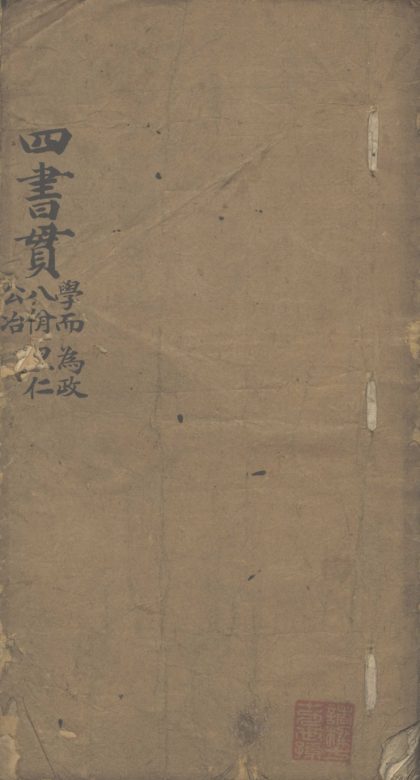 四書貫
學而 為政
八佾 里仁
公冶